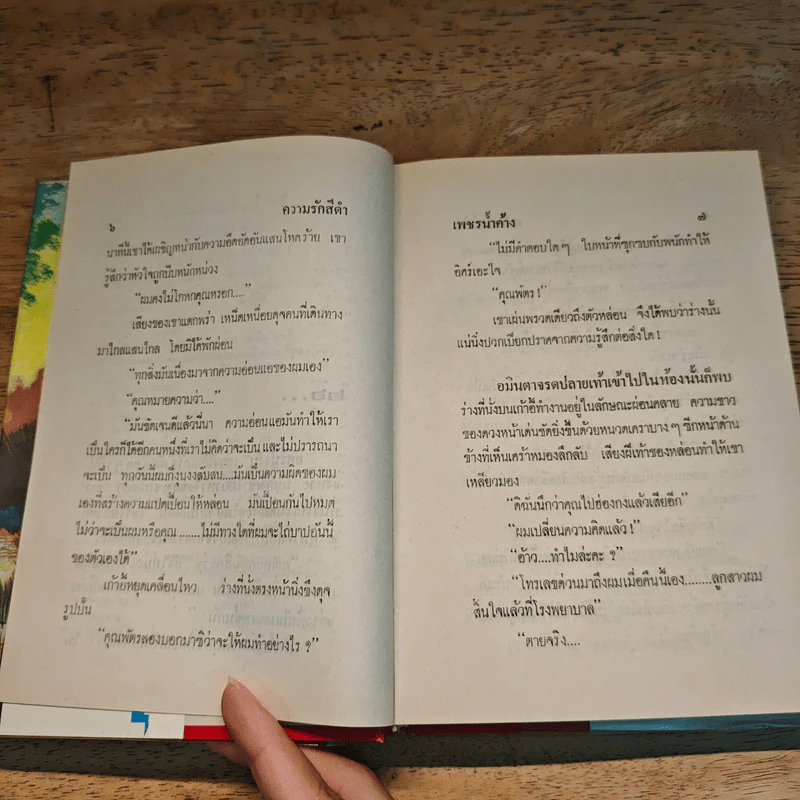 ๖
ความรักสีดำ
นาทีนี้เขาได้เผชิญหน้ากับความอึดอัดอันแสนโหดร้าย เขา
รู้สึกว่าหัวใจถูกบีบหนักหน่วง
“ผมคงไม่โกหกคุณหรอก....”
เสียงของเขาแตกพร่า เหน็ดเหนื่อยดุจคนที่เดินทาง
มาไกลแสนไกล โดยมิได้พักผ่อน
“ทุกสิ่งมันเนื่องมาจากความอ่อนแอของผมเอง”
“คุณหมายความว่า....”
“มันชัดเจนดีแล้วนี่นา ความอ่อนแอมันทำให้เรา
เป็นใครก็ได้อีกคนหนึ่งที่เราไม่คิดว่าจะเป็น และไม่ปรารถนา
จะเป็น ทุกวันนี้ผมก็งุนงงสับสน....มันเป็นความผิดของผม
เองที่สร้างความแปดเปื้อนให้หล่อน มันเปื้อนกันไปหมด
ไม่ว่าจะเป็นผมหรือคุณ.......ไม่มีทางใดที่ผมจะไถ่บาปอันนี้
ของตัวเองได้”
เก้าอี้หยุดเคลื่อนไหว ร่างที่นั่งตรงหน้านิ่งขึงดุจ
รูปปั้น
“คุณพัตรลองบอกมาซิว่าจะให้ผมทำอย่างไร ?”
เพชรน้ำค้าง
๗
“ไม่มีคำตอบใด ๆ ใบหน้าที่ซุกซบกับพนักทำให้
อิศร์เอะใจ
“คุณพัตร !”
เขาเผ่นพรวดเดียวถึงตัวหล่อน จึงได้พบว่าร่างนั้น
แน่นิ่งปวกเปียกปราศจากความรู้สึกต่อสิ่งใด !
อมินตาจรดปลายเท้าเข้าไปในห้องนั้นก็พบ
ร่างที่นั่งบนเก้าอี้ทำงานอยู่ในลักษณะผ่อนคลาย ความขาว
ของดวงหน้าเด่นชัดยิ่งขึ้นด้วยหนวดเคราบาง ๆ ซีกหน้าด้าน
ข้างที่เห็นเคร้าหมองลึกลับ เสียงฝีเท้าของหล่อนทำให้เขา
เหลียวมอง
“ดิฉันนึกว่าคุณไปฮ่องกงแล้วเสียอีก”
“ผมเปลี่ยนความคิดแล้ว !”
“อ้าว....ทำไมล่ะคะ ?”
“โทรเลขด่วนมาถึงผมเมื่อคืนนี้เอง........ลูกสาวผม
สิ้นใจแล้วที่โรงพยาบาล”
“ตายจริง....